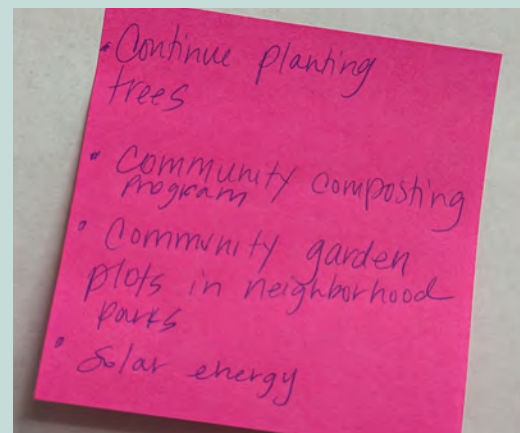 • Continue planting
trees
• Community composting
program
• Community garden
plots in neighborhood
parks
• Solar energy